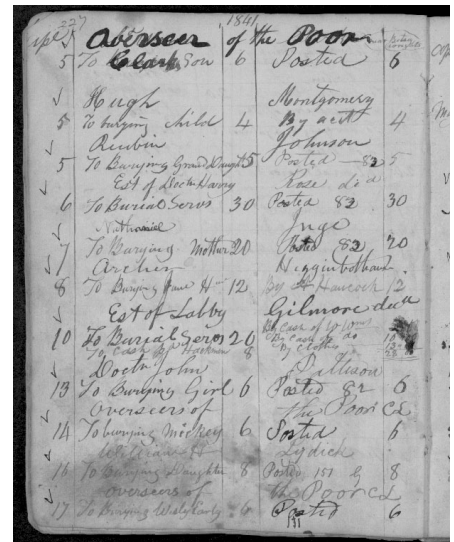 227 1841
Overseer of the Poor
5 To Clark Son 6 Posted 6
Hugh Montgomery
5 To burying child 4 By acct 4
Reubin Johnson
5 To Burying Grand Daught 5 Posted 82 5
Est of Doctr Harvy Rose decd
6 To Burial Servs 30 Posted 82 30
Nathaniel Inge
7 To Burying Mother 20 Posted 82 20
Archer Higginbotham
8 To Burying Jane H 12 By H Hancock 12
Est of Gilmore decd
10 To Burial Servs 26 By cash
To Cash 8 By cash do
By
Doctr John
13 To Burying Girl 6 Posted 82 6
Overseers of The Poor CL
14 To burying Mickey 6 Posted 6
William H Lydick
16 To Burying Daughter 8 Posted 151 by 8
Overseers of The Poor CL
17 To Burying 6 Posted 6